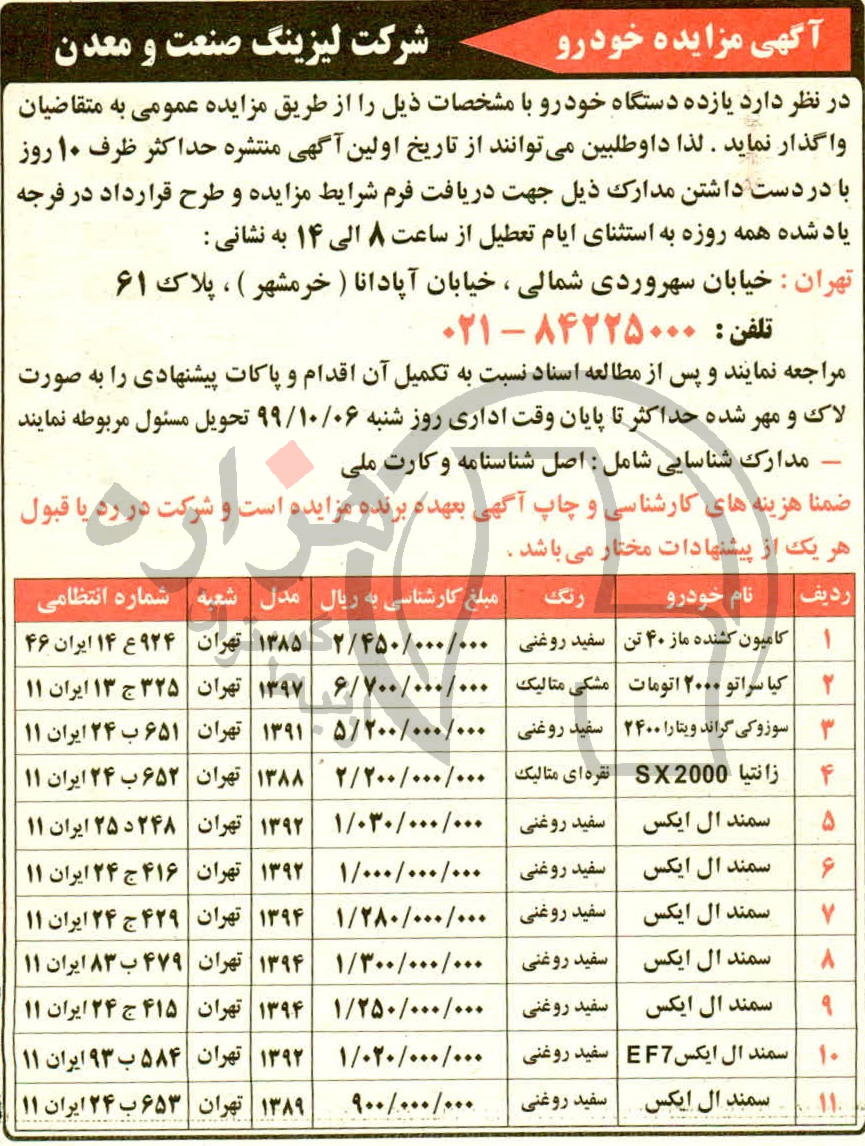 آگهی مزایده خودرو شرکت لیزینگ صنعت و معدن
در نظر دارد یازده دستگاه خودرو با مشخصات ذیل را از طریق مزایده عمومی به متقاضیان
واگذار نماید . لذا داوطلبین می‌توانند از تاریخ اولین آگهی منتشره حداکثر ظرف ۱۰ روز
با در دست داشتن مدارک ذیل جهت دریافت فرم شرایط مزایده و طرح قرارداد در فرجه
یاد شده همه روزه به استثنای ایام تعطیل از ساعت ۸ الی ۱۴ به نشانی :
تهران : خیابان سهروردی شمالی ، خیابان آپادانا ( خرمشهر ) ، پلاک ۶۱
تلفن : ۸۴۲۲۵۰۰۰ – ۰۲۱
مراجعه نمایند و پس از مطالعه اسناد نسبت به تکمیل آن اقدام و پاکات پیشنهادی را به صورت
لاک و مهر شده حداکثر تا پایان وقت اداری روز شنبه ۹۹/۱۰/۰۶ تحویل مسئول مربوطه نمایند
– مدارک شناسایی شامل : اصل شناسنامه و کارت ملی
ضمنا هزینه های کارشناسی و چاپ آگهی بعهده برنده مزایده است و شرکت در رد یا قبول
هر یک از پیشنهادات مختار می باشد .
ردیف نام خودرو رنگ مبلغ کارشناسی به ریال مدل شعبه شماره انتظامی
۱ کامیون کشنده ماز ۴۰ تن سفید روغنی ۲/۴۵۰/۰۰۰/۰۰۰ ۱۳۸۵ تهران ۹۲۴ ع ۱۴ ایران ۴۶
۲ کیا سراتو ۲۰۰۰ اتومات مشکی متالیک ۶/۷۰۰/۰۰۰/۰۰۰ ۱۳۹۷ تهران ۳۲۵ ج ۱۳ ایران ۱۱
۳ سوزوکی گراند ویتارا ۲۴۰۰ سفید روغنی ۵/۲۰۰/۰۰۰/۰۰۰ ۱۳۹۱ تهران ۶۵۱ ب ۲۴ ایران ۱۱
۴ زانتیا SX2000 نقره ای متالیک ۲/۲۰۰/۰۰۰/۰۰۰ ۱۳۸۸ تهران ۶۵۲ ب ۲۴ ایران ۱۱
۵ سمند ال ایکس سفید روغنی ۱/۰۳۰/۰۰۰/۰۰۰ ۱۳۹۲ تهران ۲۴۸ د ۲۵ ایران ۱۱
۶ سمند ال ایکس سفید روغنی ۱/۰۰۰/۰۰۰/۰۰۰ ۱۳۹۲ تهران ۴۱۶ ج ۲۴ ایران ۱۱
۷ سمند ال ایکس سفید روغنی ۱/۲۸۰/۰۰۰/۰۰۰ ۱۳۹۴ تهران ۴۲۹ ج ۲۴ ایران ۱۱
۸ سمند ال ایکس سفید روغنی ۱/۳۰۰/۰۰۰/۰۰۰ ۱۳۹۴ تهران ۴۷۹ ب ۸۳ ایران ۱۱
۹ سمند ال ایکس سفید روغنی ۱/۲۵۰/۰۰۰/۰۰۰ ۱۳۹۴ تهران ۴۱۵ ج ۲۴ ایران ۱۱
۱۰ سمند ال ایکس EF7 سفید روغنی ۱/۰۲۰/۰۰۰/۰۰۰ ۱۳۹۲ تهران ۵۸۴ ب ۹۳ ایران ۱۱
۱۱ سمند ال ایکس سفید روغنی ۹۰۰/۰۰۰/۰۰۰ ۱۳۸۹ تهران ۶۵۳ ب ۲۴ ایران ۱۱
هزاره